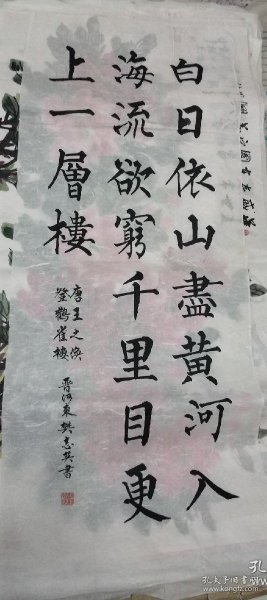 白日依山盡黄河入
海流欲窮千里目更
上一層樓
唐王之渙
登鸛雀樓
晋河東樊志英書